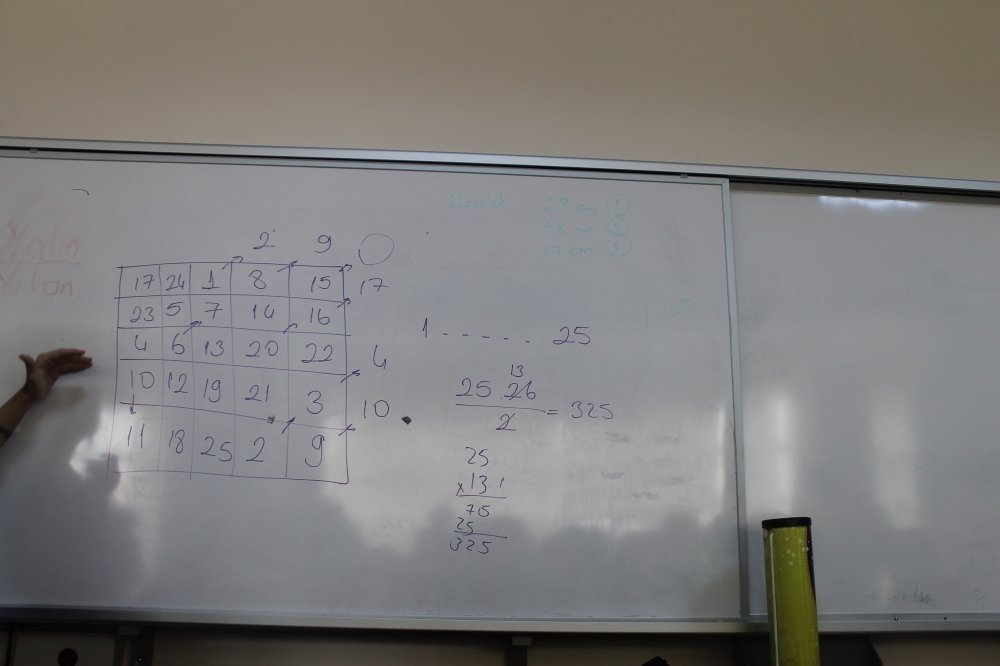 29 cm 1
58 cm 2
87 cm 1
2 9
17 24 1 8 15 17
23 5 7 14 16
4 6 13 20 22 4
10 12 19 21 3 10
11 18 25 2 9
1 - - - - - 25
13
25 . 26
2
= 325
25
x 13
75
25
325